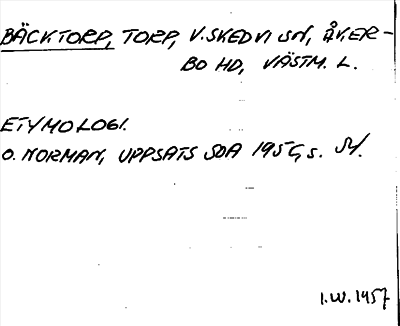 BÄCKTORP, TORP, V. SKEDVI SN, ÅKER-
BO HD, VÄSTM. L.
ETYMOLOGI.
O. NORMAN, UPPSATS SOA 1957, s.
I.W. 1957